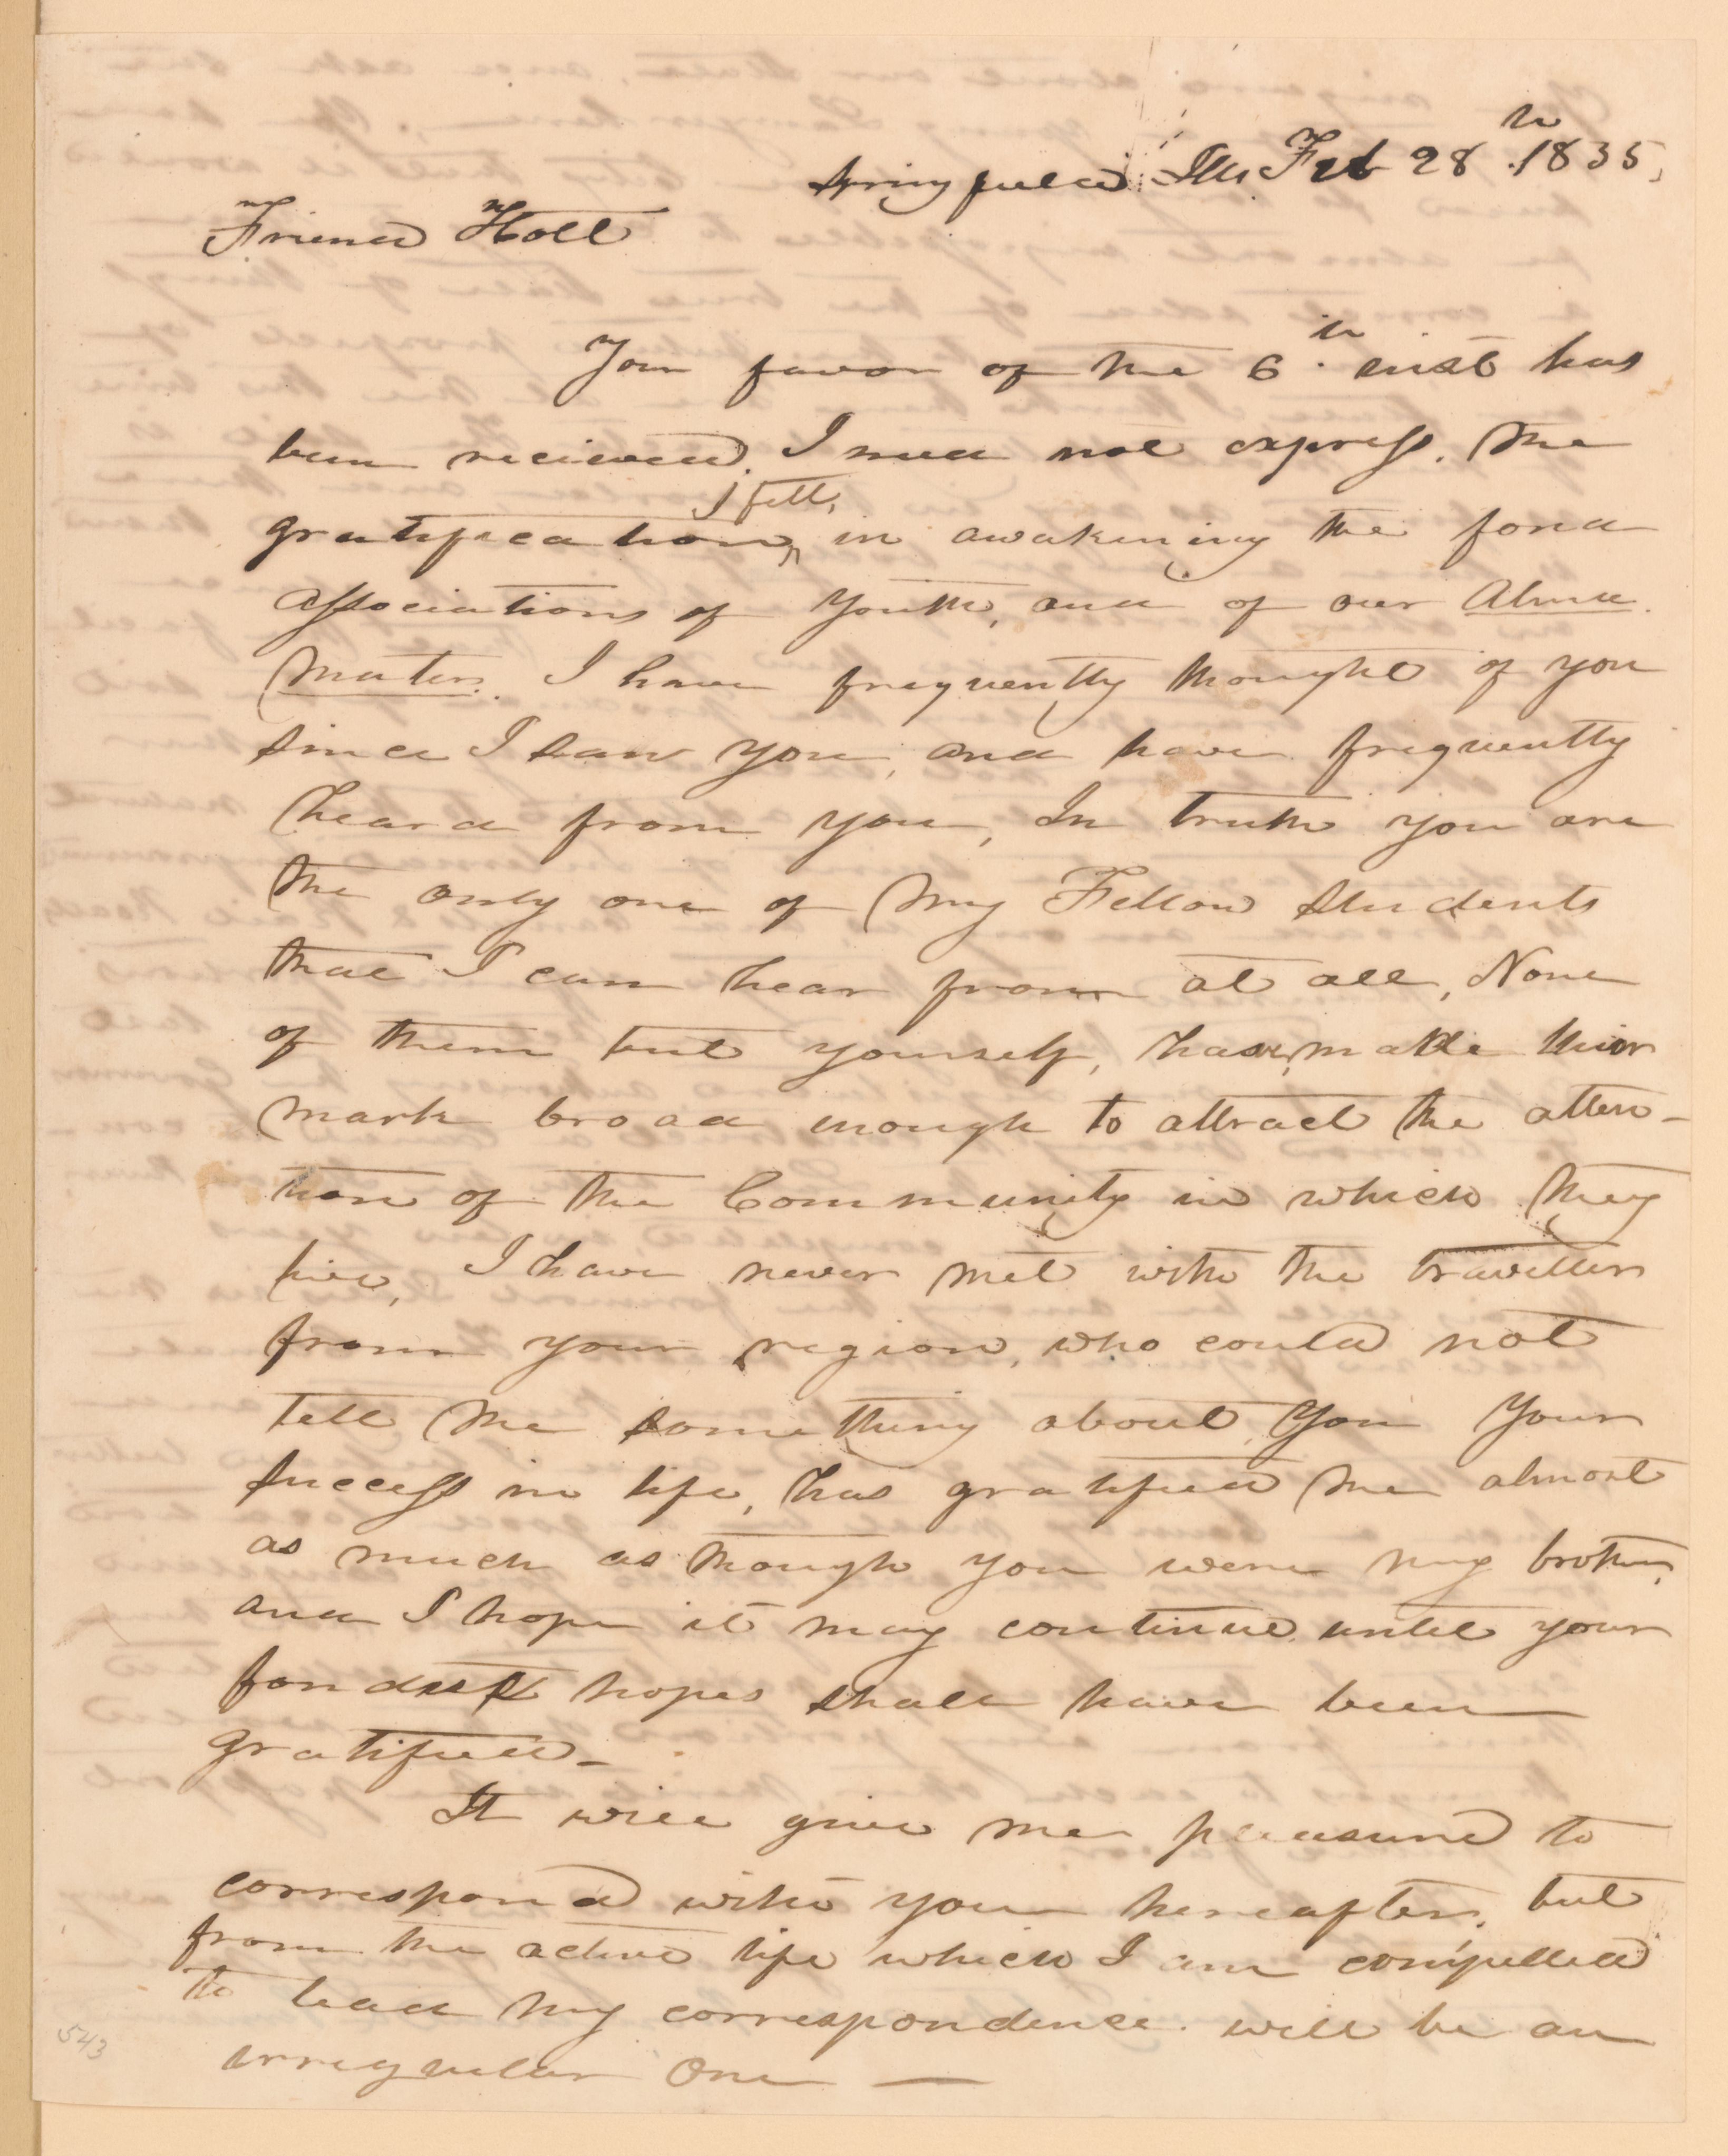 Springfield Ills Feb 28th 1835,
Friend Holt
Your favor of the 6th inst has
been recieved. I need not express, the
gratification, I felt, in awakening the fond
associations of youth, and of our Alma
Mater. I have frequently thought of you
since I saw you, and have frequently
heard from you, In truth you are
the only one of my Fellow students
that I can hear from at all, None
of them but yourself, have, made their
mark broad enough to attract the atten-
tion of the Community in which they
live, I have never met with the traveller
from your region, who could not
tell me something about you Your
success in life, has gratified me almost
as much as though you were my brother,
and I hope it may continue until your
fondest hopes shall have been
gratified-
It will give me pleasure to
correspond with you hereafter, but
from the active life which I am compelled
to lead my correspondence will be an
irregular One —
543